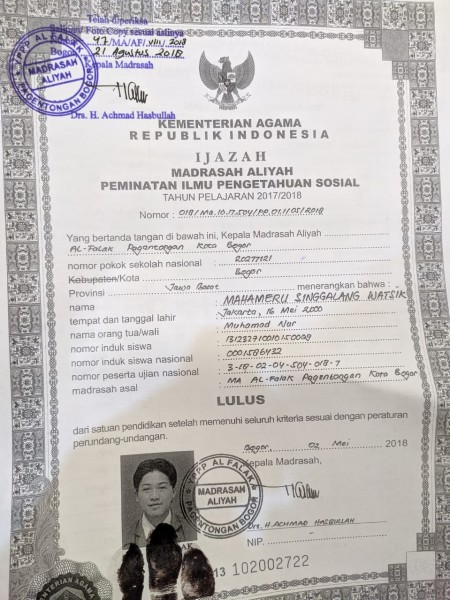 Telah diperiksa
Salinan/ Foto Copy sesuai aslinya
47/MA/AF/VIII/2018
Bogor, 21 Agustus 2018
Kepala Madrasah
YPPP AL FALAK
MADRASAH
ALIYAH
PAGENTONGAN BOGOR
Drs. H. Achmad Hasbullah
KEMENTERIAN AGAMA
REPUBLIK INDONESIA
IJAZAH
MADRASAH ALIYAH
PEMINATAN ILMU PENGETAHUAN SOSIAL
TAHUN PELAJARAN 2017/2018
Nomor : 018/Ma.10.17.504/PP.01.1/05/2018
Yang bertanda tangan di bawah ini, Kepala Madrasah Aliyah
AL-Falak Pagentongan Kota Bogor
nomor pokok sekolah nasional : 20277121
Kabupaten/Kota : Bogor
Provinsi Jawa Barat menerangkan bahwa :
nama : MAHAMERU SINGGALANG WATSIK
tempat dan tanggal lahir : Jakarta, 16 Mei 2000
nama orang tua/wali : Muhamad Nur
nomor induk siswa : 131232710010150009
nomor induk siswa nasional : 0001586432
nomor peserta ujian nasional : 3-18-02-04-504-018-7
madrasah asal : MA AL-Falak Pagentongan Kota Bogor
LULUS
dari satuan pendidikan setelah memenuhi seluruh kriteria sesuai dengan peraturan
perundang-undangan.
Bogor, 02 Mei 2018
Kepala Madrasah,
YPPP AL FALAK
MADRASAH
ALIYAH
PAGENTONGAN BOGOR
Drs. H. ACHMAD HASBULLAH
NIP.
13 102002722
KEMENTERIAN AGAMA